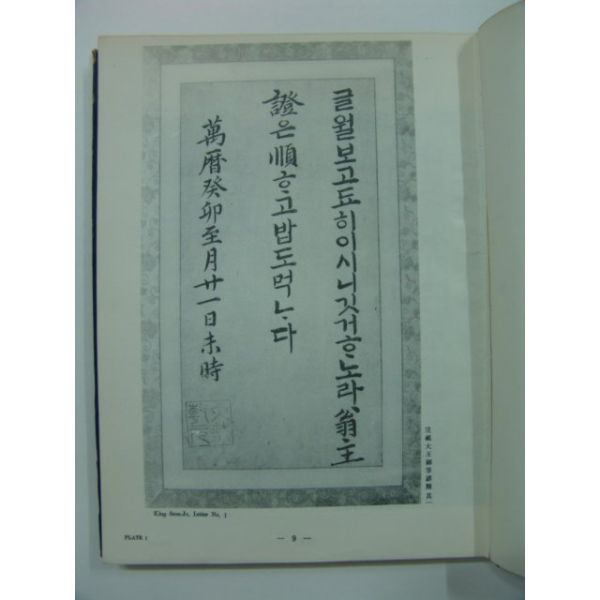 글월보고됴히이시니깃거ᄒᆞ노라翁主
證은順ᄒᆞ고밥도먹ᄂᆞ다
萬曆癸卯至月廿一日未時
宣祖大王御筆諺簡其一
King Letter No. 1
PLATE 1
— 9 —